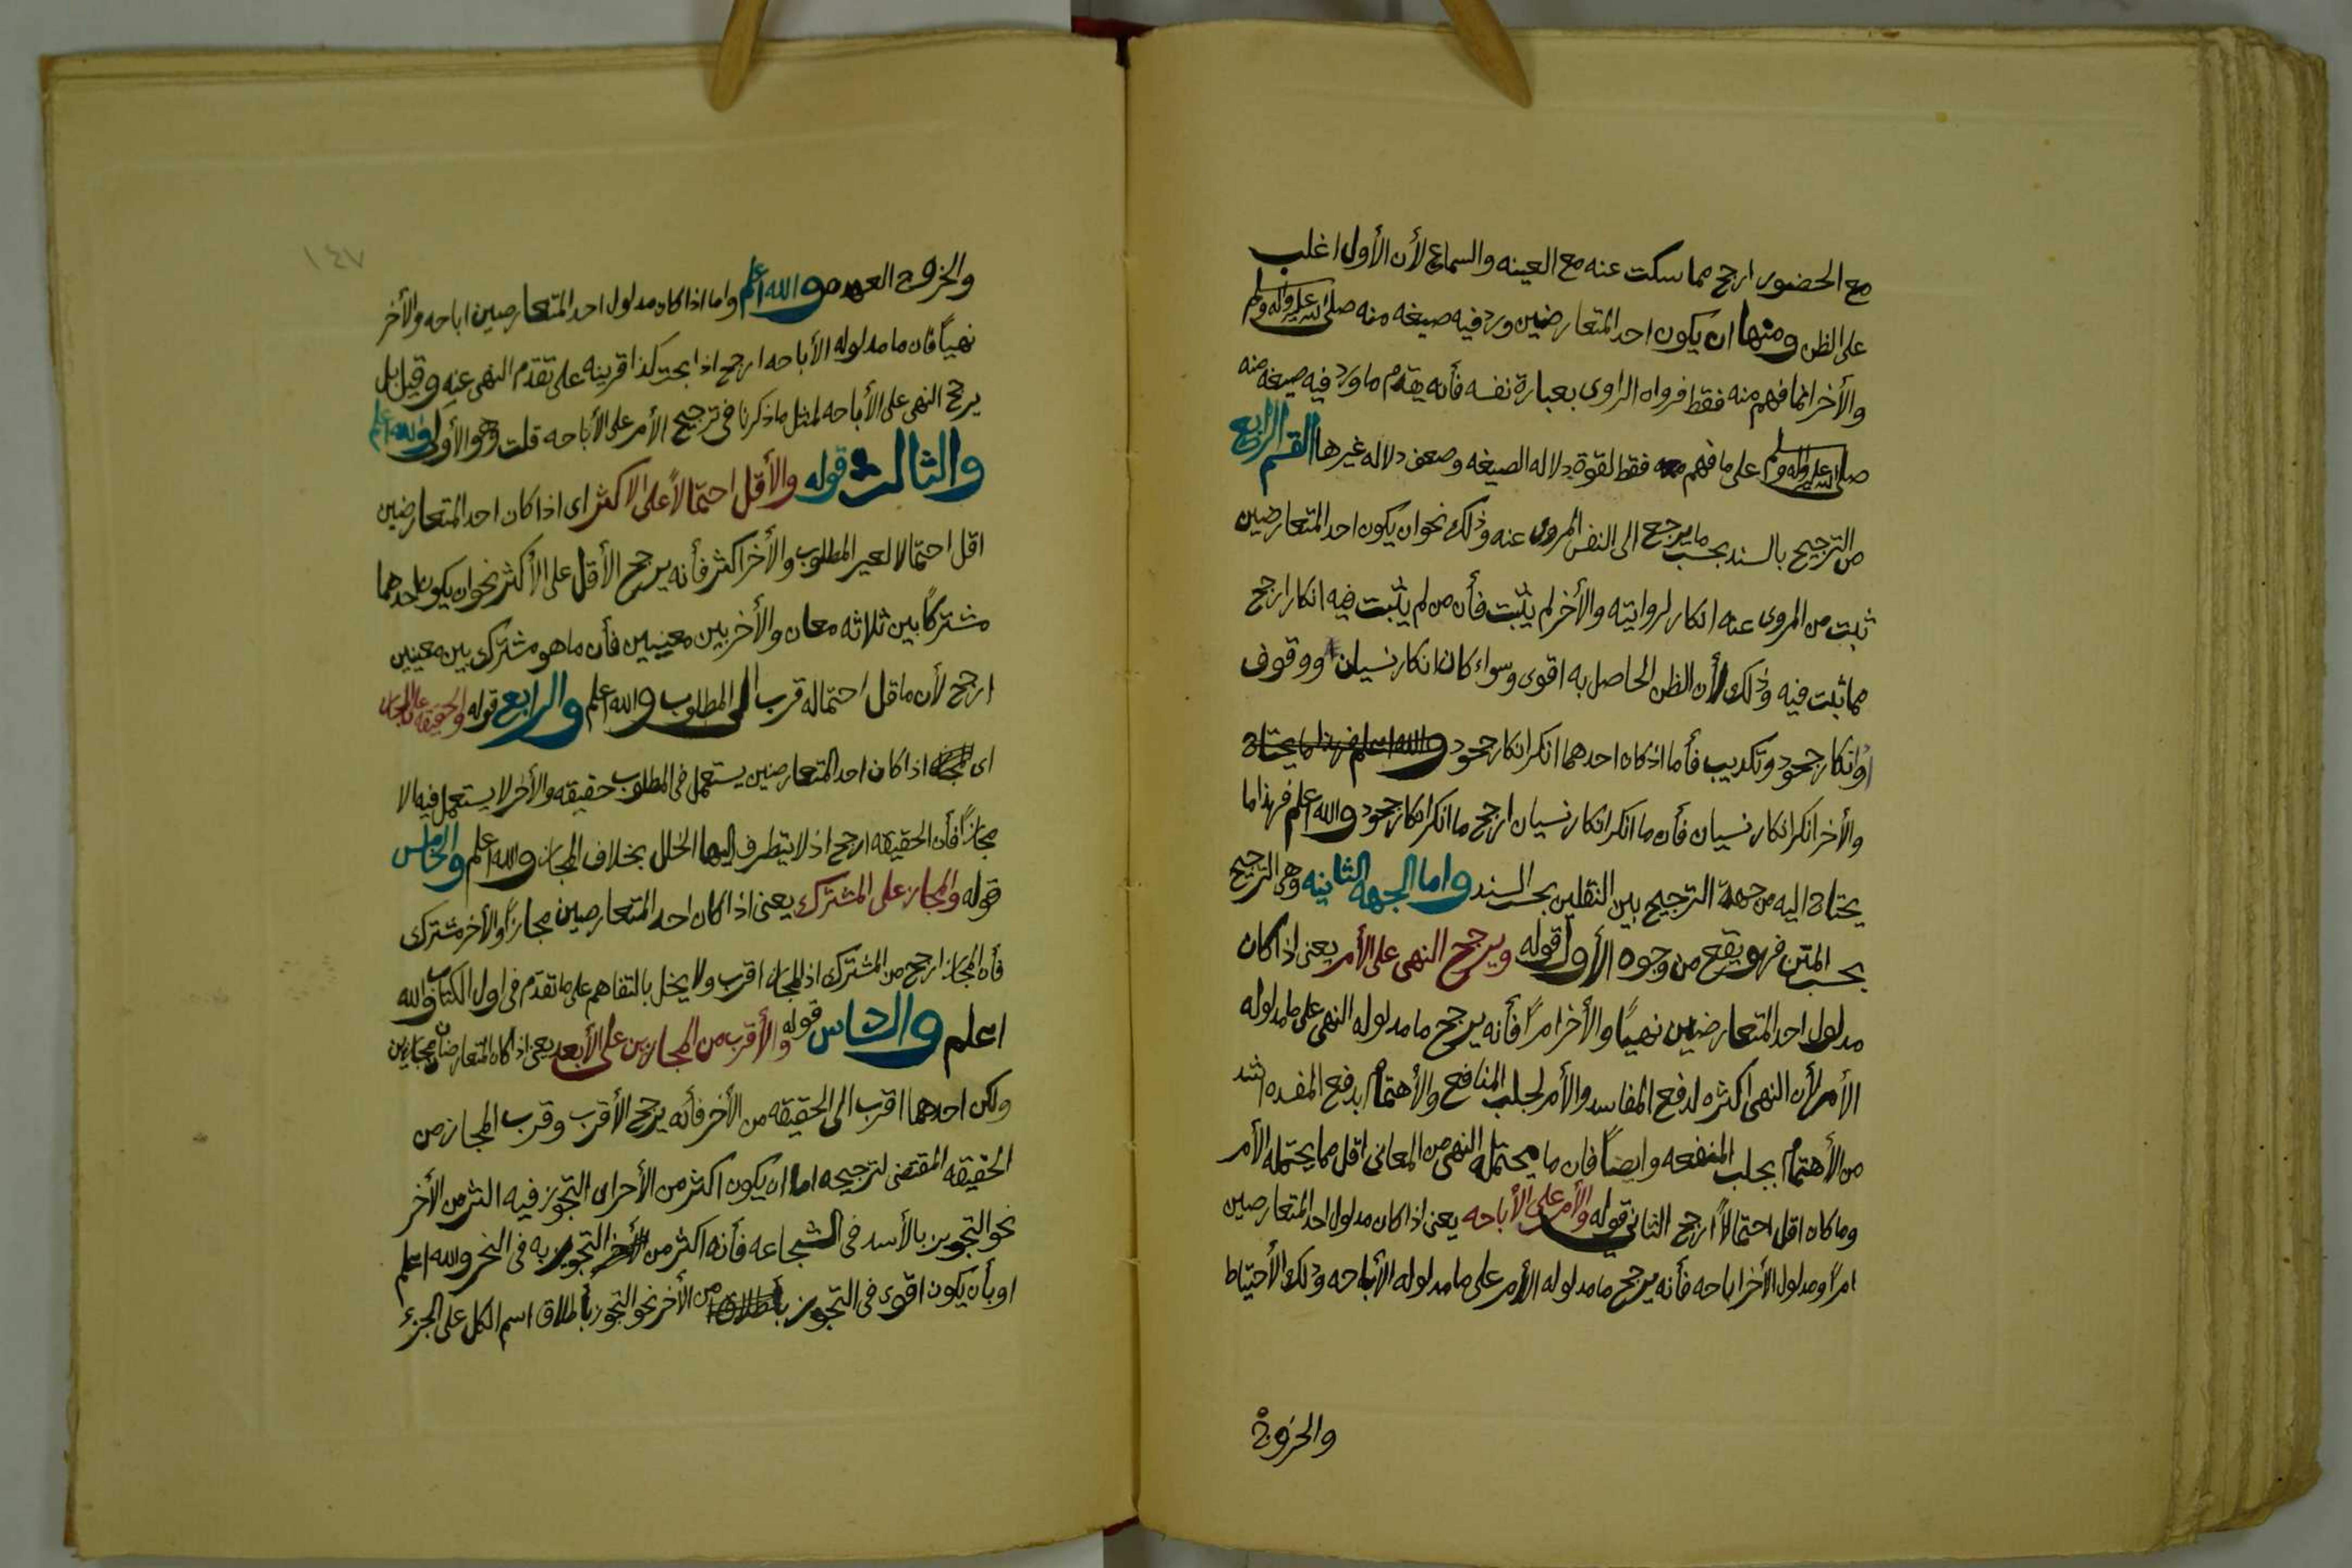 مع الحضور ارجح مما سكت عنه مع الغيبه والسماع لأن الأول اغلب
على الظن ومنها ان يكون احد المتعارضين ورد فيه صيغه منه صلى الله عليه واله وسلم
والأخر انما فهم منه فقط فرواه الراوى بعبارة نفسه فأنه يقدم ما ورد فيه صيغه منه
صلى الله عليه واله وسلم على ما فهم منه فقط لقوة دلاله الصيغه وضعف دلاله غيرها القسم الرابع
من الترجيح بالسند بحسب ما يرجع الى النفس المروى عنه وذلك نحو ان يكون احد المتعارضين
ثبت من المروى عنه انكار لروايته والأخر لم يثبت فأن من لم يثبت فيه انكار ارجح
مما ثبت فيه وذلك لأن الظن الحاصل به اقوى وسواء كان انكار نسيان ووقوف
او انكار جحود وتكذيب فأما اذا كان احدهما انكر انكار جحود والله اعلم فهذا ما يحتاج
والأخر انكر انكار نسيان فأن ما انكر انكار نسيان ارجح ما انكر انكار جحود والله اعلم فهذا ما
يحتاج اليه من جهة الترجيح بين النقلين بحسب السند واما الجهه الثانيه وهى الترجيح
بحسب المتن فهو يقع من وجوه الأول قوله ويرجح النهى على الأمر يعنى اذا كان
مدلول احد المتعارضين نهيًا والأخر امرًا فأنه يرجح ما مدلوله النهى على ما مدلوله
الأمر لأن النهى اكثره لدفع المفاسد والأمر لجلب المنافع والأهتمام بدفع المفسده اشد
من الأهتمام بجلب المنفعه وايضًا فان ما يحتمله النهى من المعانى اقل مما يحتمله الأمر
وما كان اقل احتمالًا ارجح الثانى قوله والأمر على الأباحه يعنى اذا كان مدلول احد المتعارضين
امرًا ومدلول الأخر اباحه فأنه يرجح ما مدلوله الأمر على ما مدلوله الأباحه وذلك الأحتياط
والخروج
١٤٧
والخروج العهده والله اعلم واما اذا كان مدلول احد المتعارضين اباحه والأخر
نهيًا فان ما مدلوله الأباحه ارجح اذا قرينه على تقدم النهى عنه وقيل بل
يرجح النهى على الأباحه لمثل ما ذكرنا فى ترجيح الأمر على الأباحه قلت وهو الأولى والله اعلم
والثالث قوله والأقل احتمالًا على الاكثر اى اذا كان احد المتعارضين
اقل احتمالا لغير المطلوب والأخر اكثر فأنه يرجح الأقل على الأكثر نحو ان يكون احدهما
مشتركًا بين ثلاثه معان والأخر بين معنيين فأن ما هو مشترك بين معنيين
ارجح لأن ما قل احتماله قرب الى المطلوب والله اعلم والرابع قوله والحقيقه على المجاز
اى اذا كان احد المتعارضين يستعمل فى المطلوب حقيقه والأخر لا يستعمل فيه الا
مجازًا فأن الحقيقه ارجح اذ لا يتطرف اليها الخلل بخلاف المجاز والله اعلم والخامس
قوله والمجاز على المشترك يعنى اذا كان احد المتعارضين مجازًا والأخر مشترك
فأن المجاز ارجح من المشترك اذ المجاز اقرب ولا يخل بالتفاهم على ما تقدم فى اول الكتاب والله
اعلم والسادس قوله والأقرب من المجازين على الأبعد يعنى اذا كان المتعارضان مجازين
ولكن احدهما اقرب الى الحقيقه من الأخر فأنه يرجح الأقرب وقرب المجاز من
الحقيقه المقتضى لترجيحه اما ان يكون اكثر من الأخر اى التجوز فيه اكثر من الأخر
نحو التجويز بالأسد فى الشجاعه فأنه اكثر من التجويز به فى البخر والله اعلم
او بأن يكون اقوى فى التجوز من الأخر نحو التجوز بأطلاق اسم الكل على الجزء